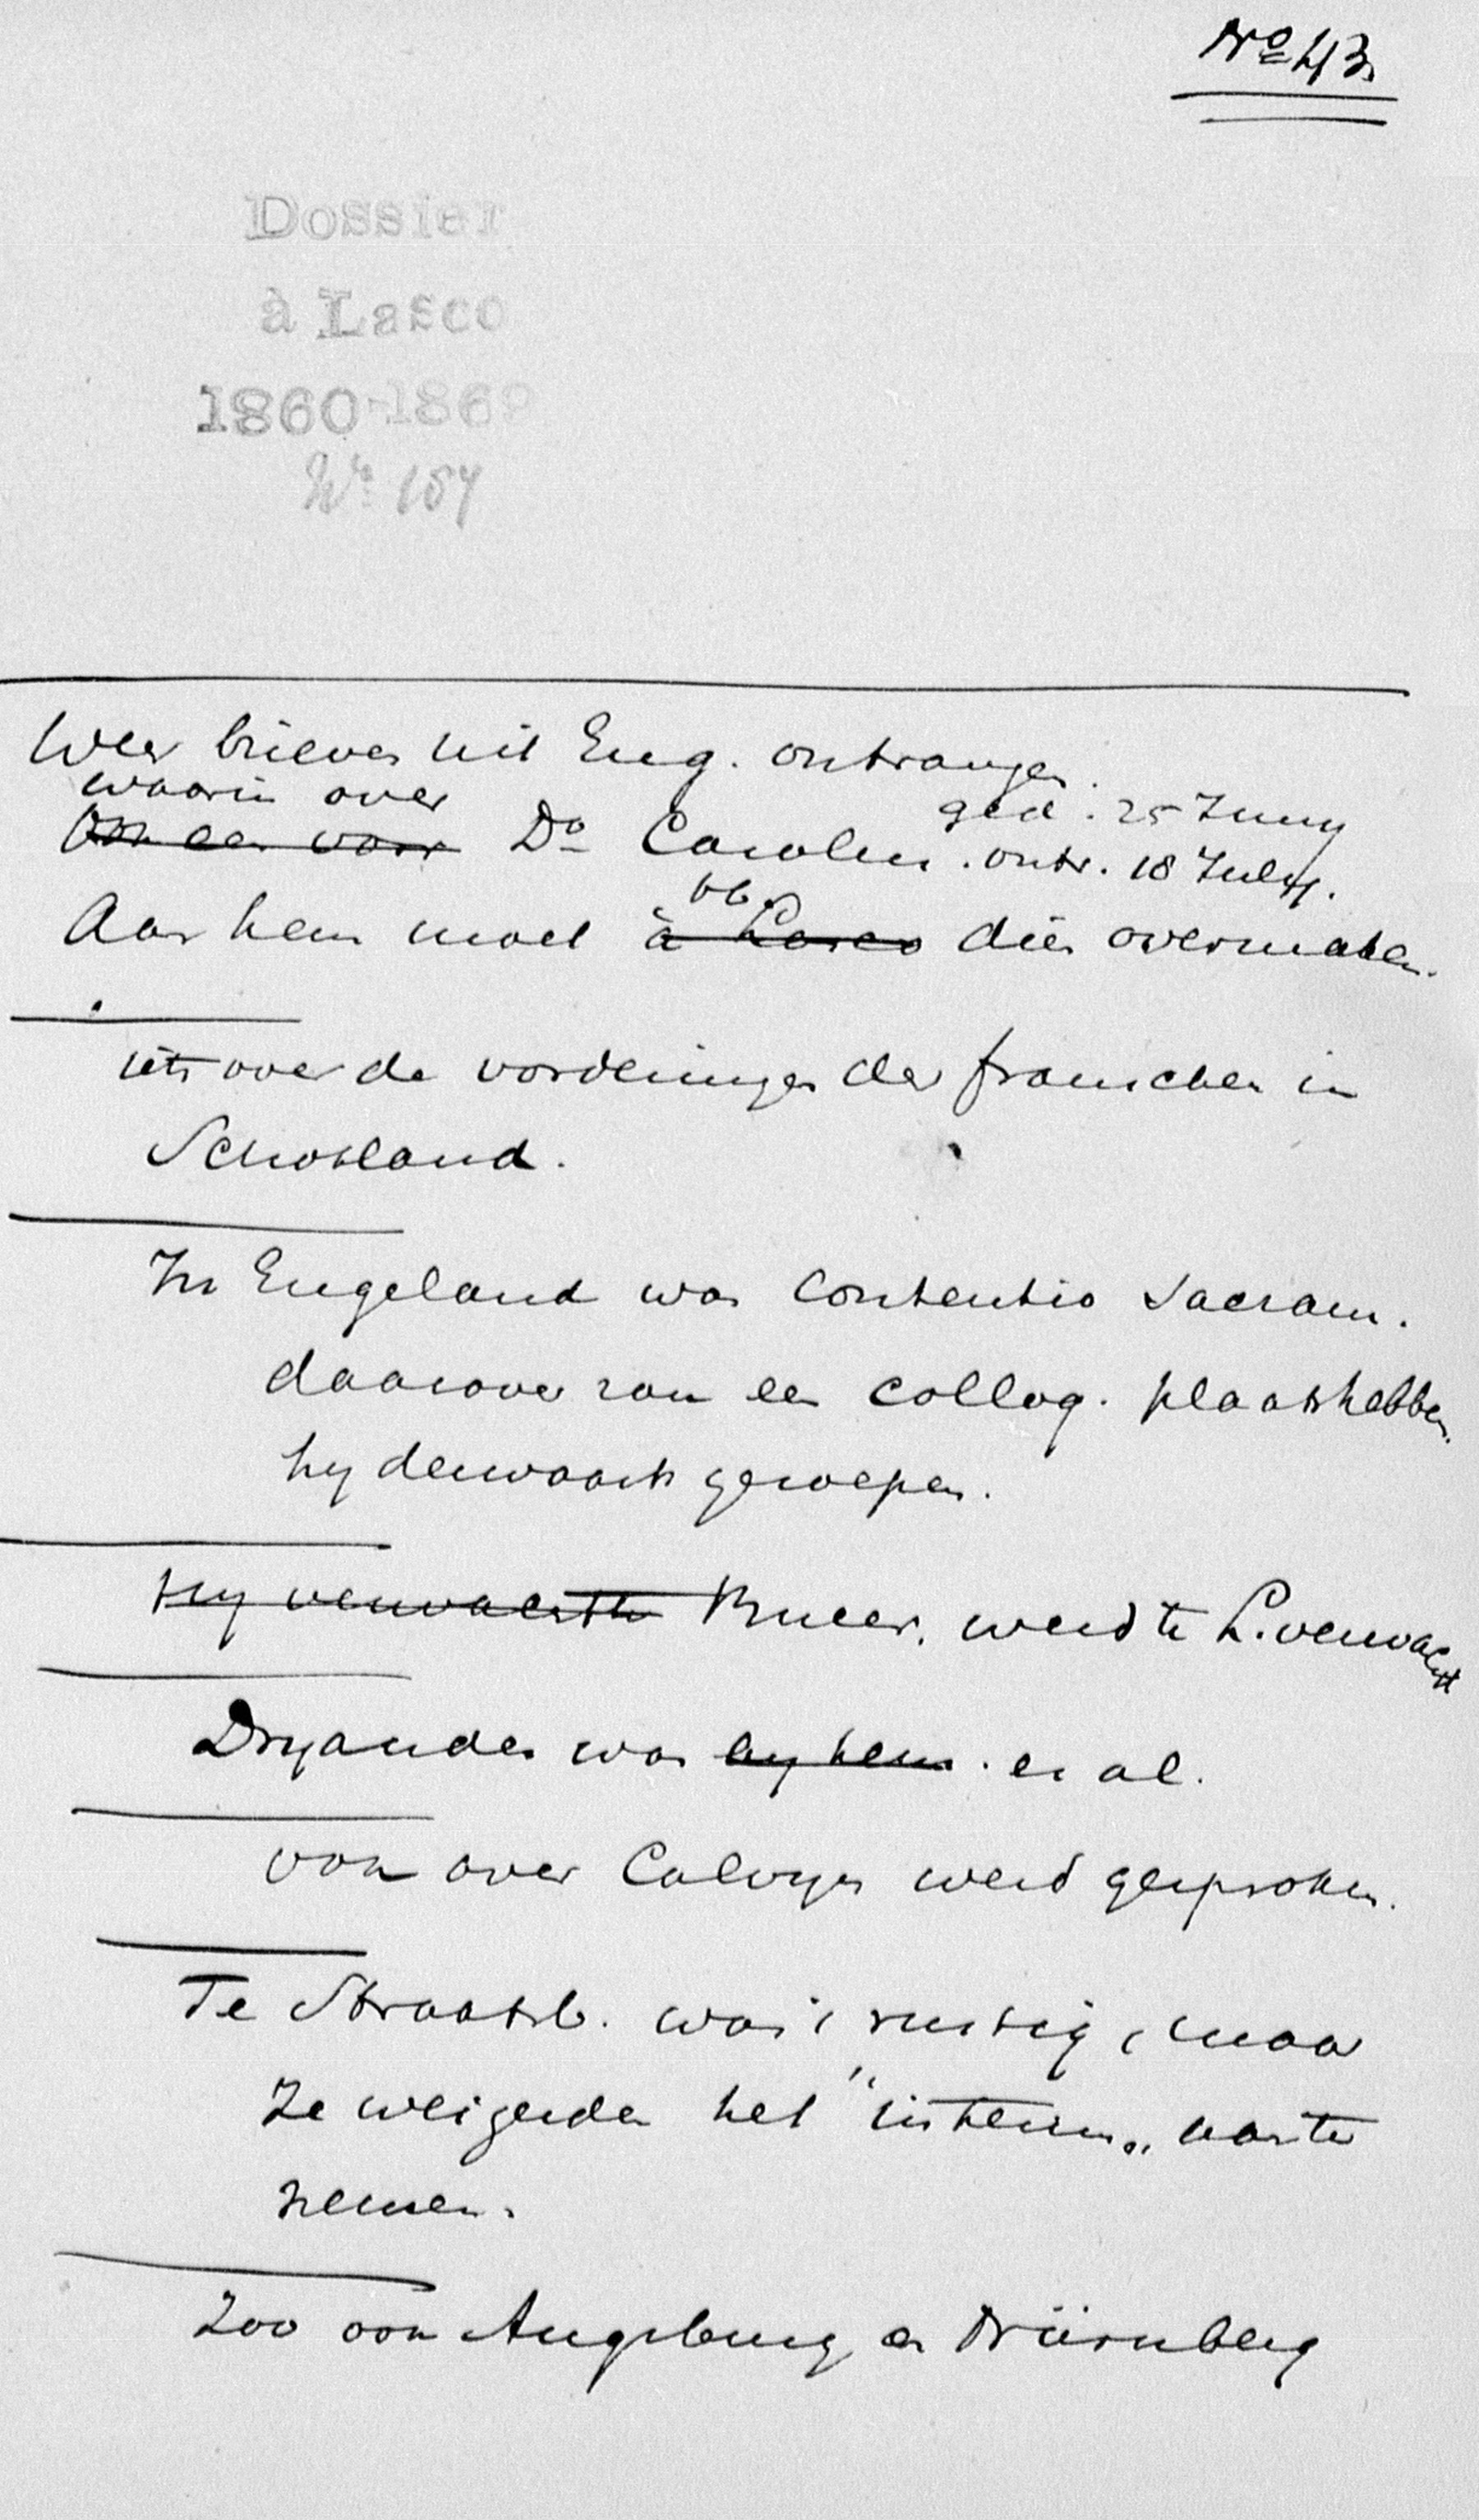 No 43
Dossier
à Lasco
1860-1869
No 154
Weer brieven uit Eng. ontvangen.
waarin over
ged. 25 Juny
Do Carolen. ontv. 18 July.
bb.
Aan hem moet à Lasco dien overmaken.
iets over de vorderingen der franschen in
Schotland.
In Engeland was Contentio Sacram.
daarover zou een colloq. plaats hebben
hy derwaarts geroepen.
Hy verwachtte Bucer. werd te L. verwacht
Dryander was by hem. er al.
ook over Calvyn werd gesproken.
Te Straatsb. was 't rustig, maar
ze weigerden het "interim" aan te
nemen.
Zoo ook Augsburg en Nürnberg